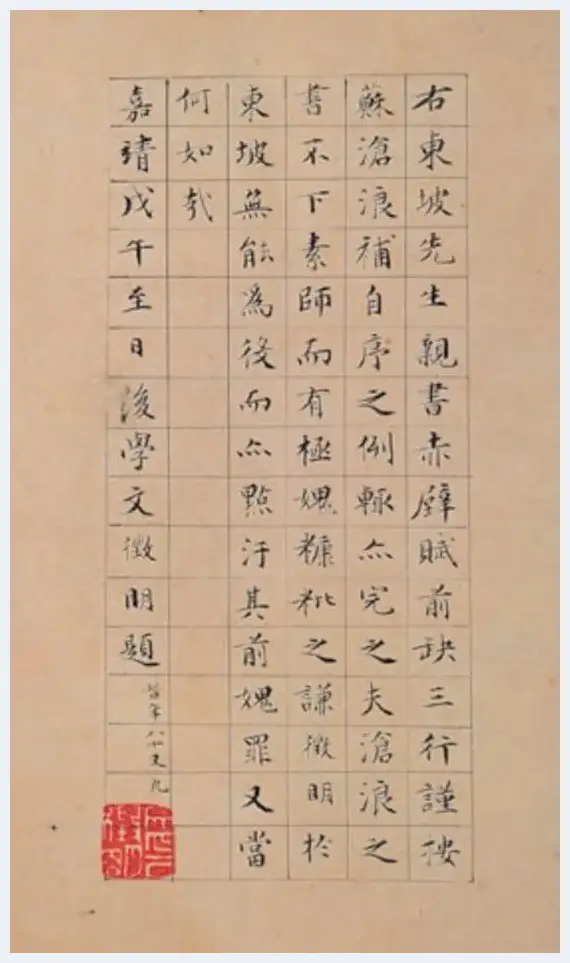 右東坡先生親書赤壁賦前缺三行謹按
蘇滄浪補自序之例輒亦完之夫滄浪之
書不下素師而有極媿糠粃之謙徵明於
東坡無能爲役而亦點汙其前媿罪又當
何如哉
嘉靖戊午至日後學文徵明題
時年八十又九